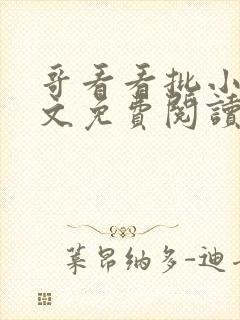 哥看看批小
文免費閱讀
莱昂纳多-迪卡